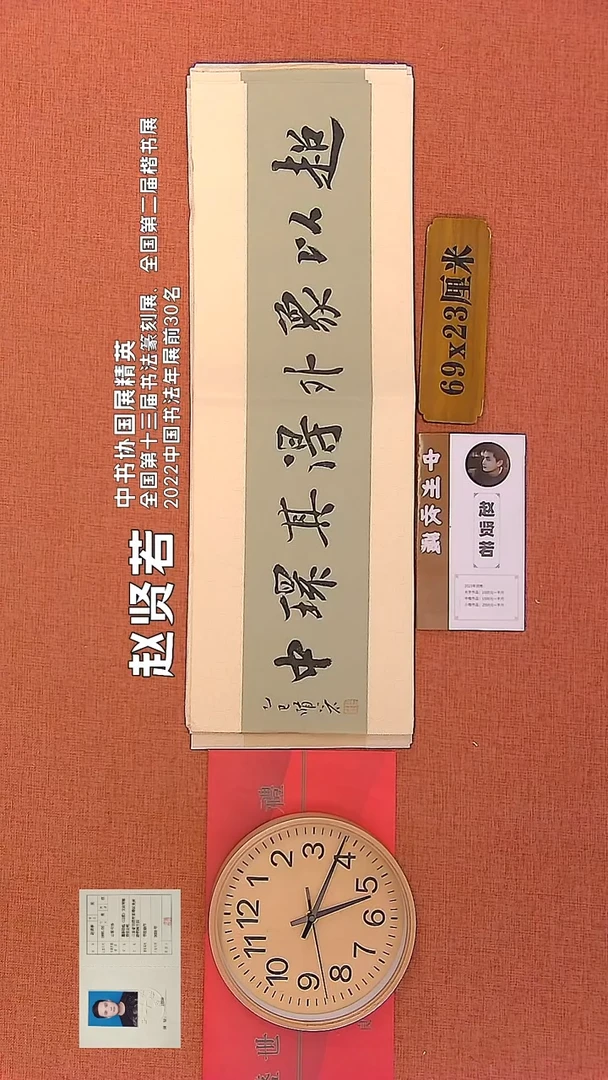 中书协国展精英
全国第十三届书法篆刻展、全国第二届楷书展
2022中国书法年展前30名
赵贤若
超以象外得其環中
乙巳賢若
69x23厘米
赵贤若
禮
12
1
2
3
4
5
6
7
8
9
10
11